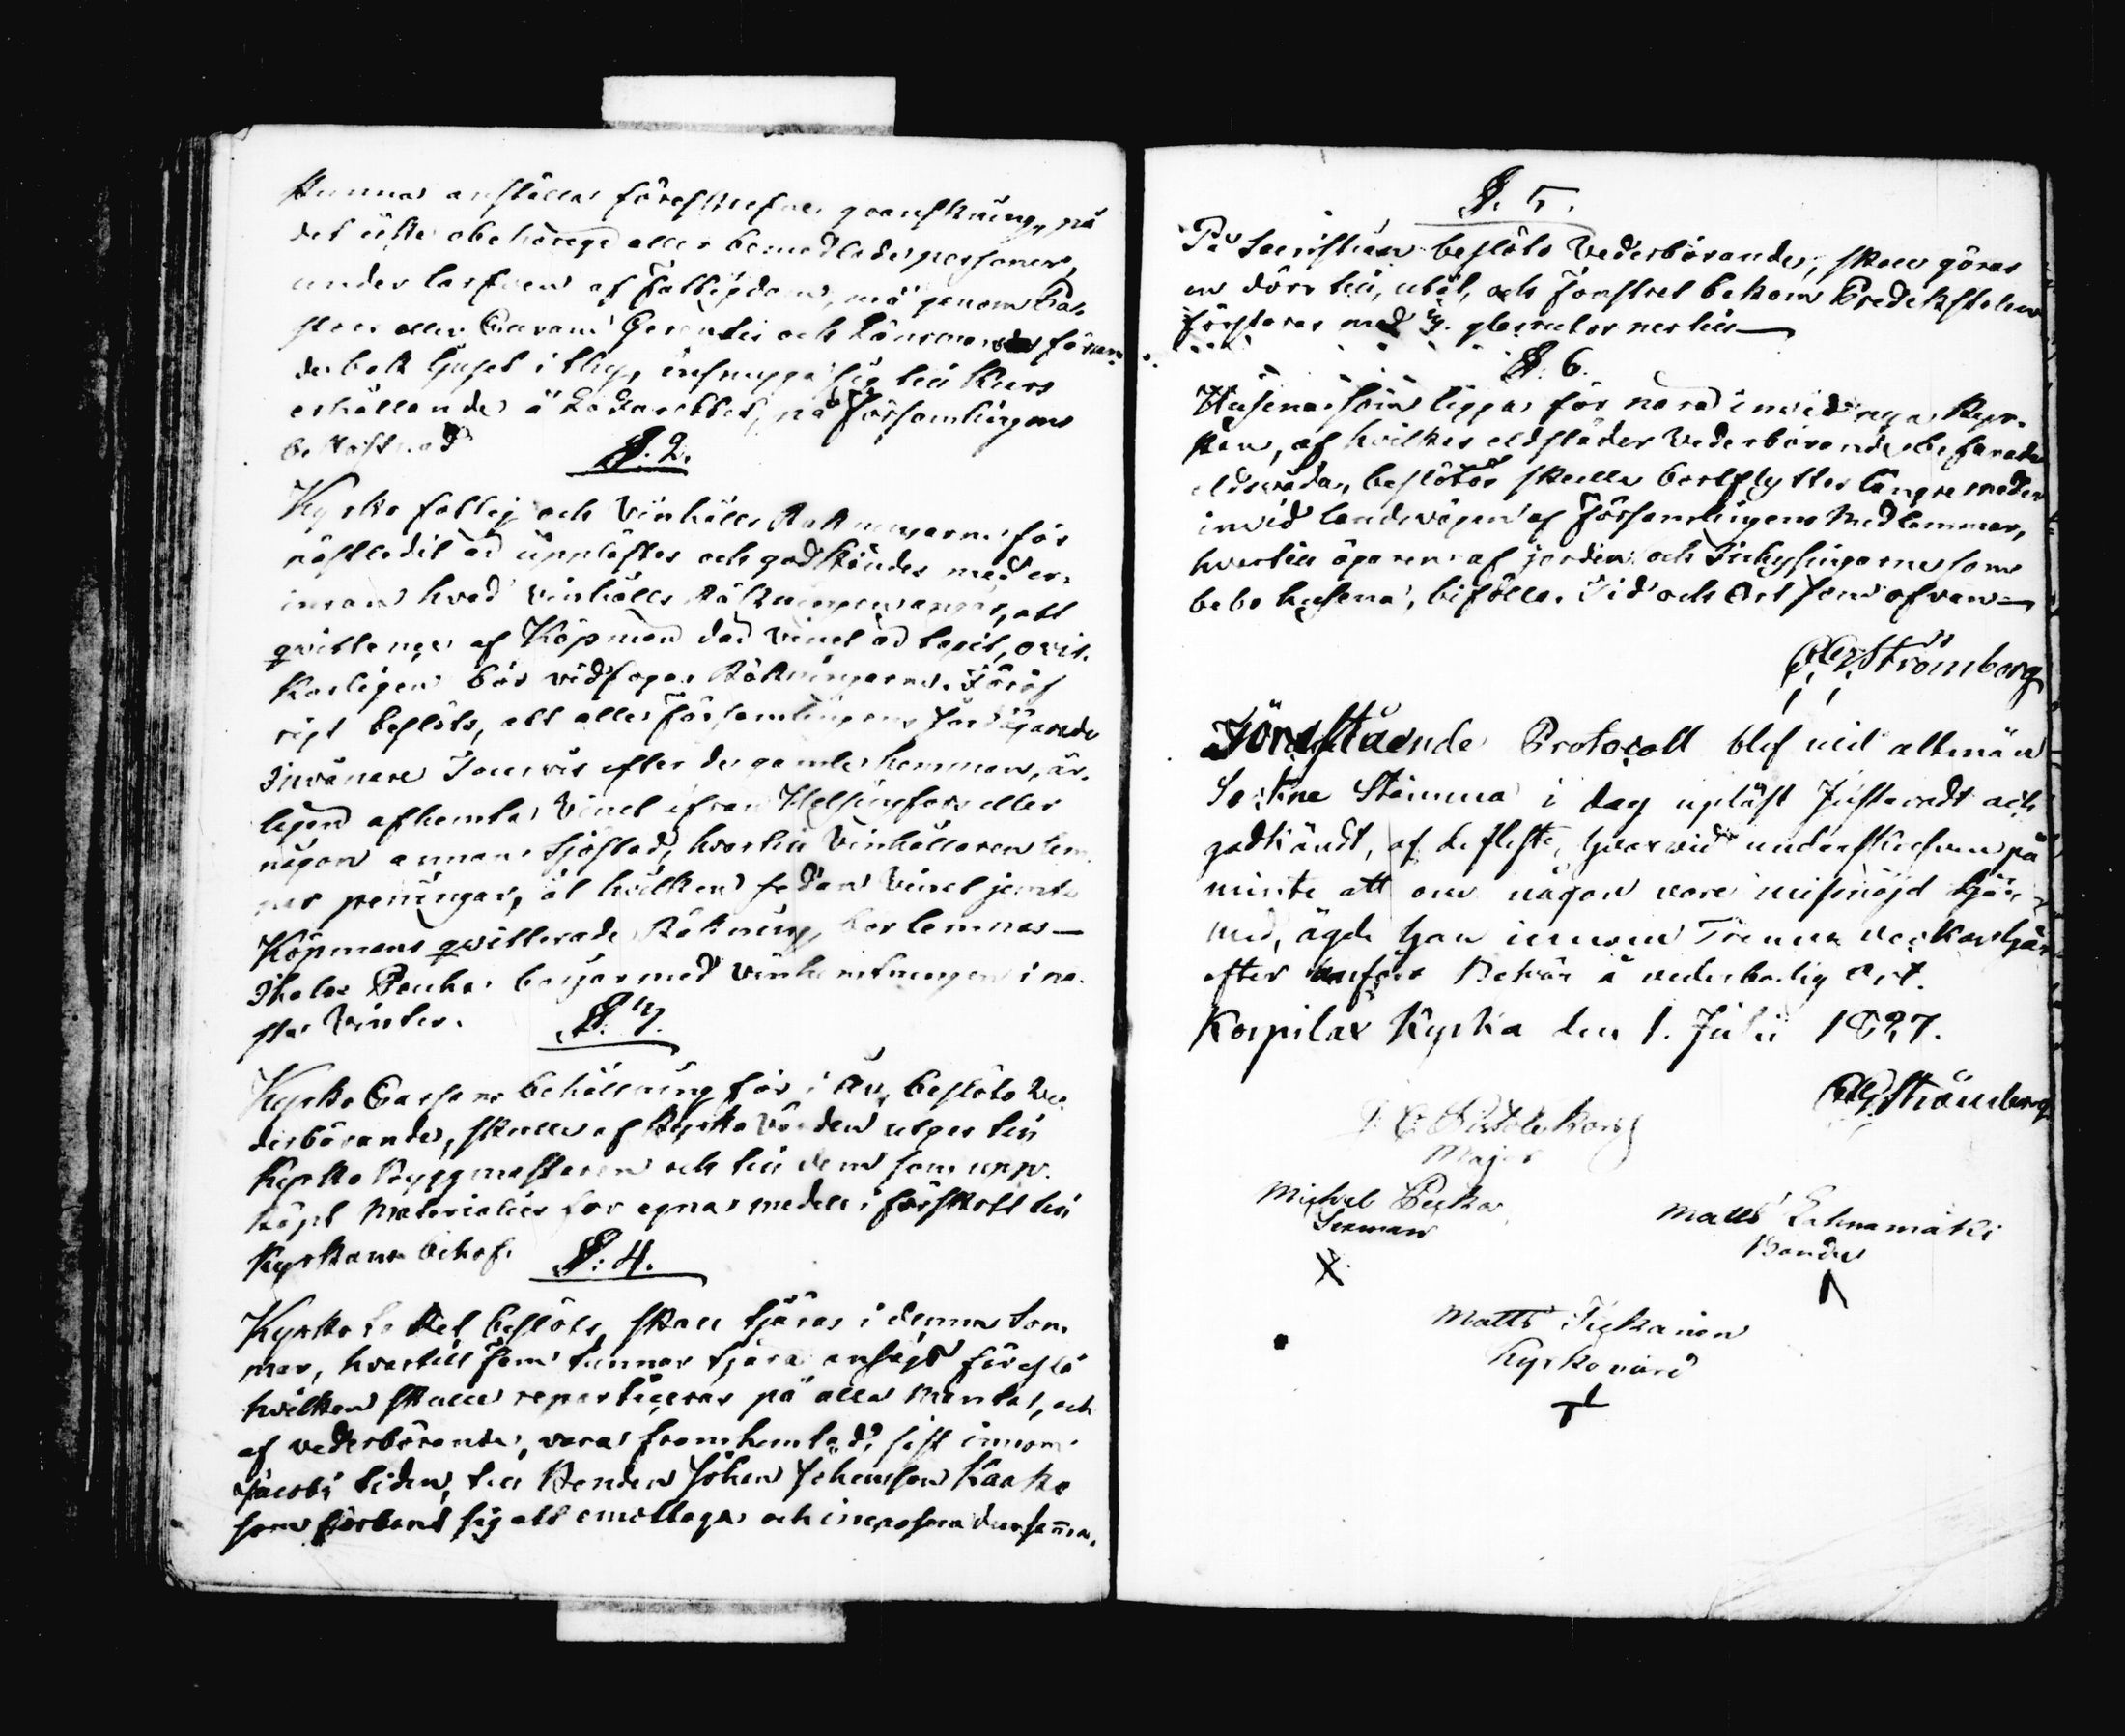 kunna anställas föreskrefven granskning, på
det icke obehörige eller bemedlade personer,
under larfven af fattigdom, må genom Pas-
tors eller Cronans Gerentie och Länsmans
der bok ljuset i thy, insmyga sig till Kurs
erhållande å Lazarettet, på Församlingens
bekostnad
§. 2.
Kyrko fattig och Vinhålls Räkningarne för
nästledit år upplästes och godkändes med er-
inran hvad Vinhålls Räkningen angår, att
qvittence af Köpman där vinet är tagit, ovil-
korligen bör vidfogas Räkningarne. Föröf-
rigt beslöts, att alle Församlingens Jordägande
Invånare Tourvis efter de gamle hemman, år-
ligen afhemta Vinet ifrån Helsingfors eller
någon annan Sjöstad, hvartill Vinhållaren lem-
nar penningar, åt hvilken sedan Vinet jemte
Köpmans qvitterade Räkning, bör lemnas —
börjar med vinhemtningen i nä-
sta Vinter.
§. 3.
Kyrko Cassans behållning för i År, beslöto Ve-
derbörande, skulle af Kyrko Värden utges till
Kyrko Byggmästaren och till dem som upp-
köpt Materialier för egna medel i förskott till
Kyrkans behof.
§: 4.
Kyrko Taket beslöts, skall tjäras i denna Som-
mar, hvartill fem tunnor tjära ansågs föreslå
hvilken skulle reparticeras på alla Mantal, och
af vederbörande, vara framhemtad, sist innom
Jacobi tiden, till Bonden Johan Johansson Kaako
som förband sig att emottaga och inepassa densamma.
§. 5.
På Sacristian beslöto Vederbörande, skall göras
en dörr till, utåt, och fönstret bakom Predikstolen
förstoras med 4. glasrutor ner till —
§. 6.
Husena som ligga för nära invid nya Kyr-
kan, af hvilkas eldstäder Vederbörande befarade
eldsvåda, beslötos skulle bortflyttas längre neder
invid landsvägen af Församlingens Medlemmar,
hvartill ägaren af jorden och Inhysingarne som
bebo husena, biföllo. Tid och Ort som ofvan —
Strömborg
Föreståënde Protocoll blef vid allmän
Sockne Stämma i dag upläst Justeradt och
godkändt, af de fleste, hvarvid underskrefven på
minte att om någon vore missnöjd här-
med, ägde han innom Trenne veckor här
efter anföra Besvär å vederbörlig Ort.
Korpilax Kyrka den 1. Julii 1827.
Strömborg
Pistolekors
Major
Michel Peckor
Sexman
X
Matts Lahnamäki
Bonde
Matts Tickainen
Kyrkovärd